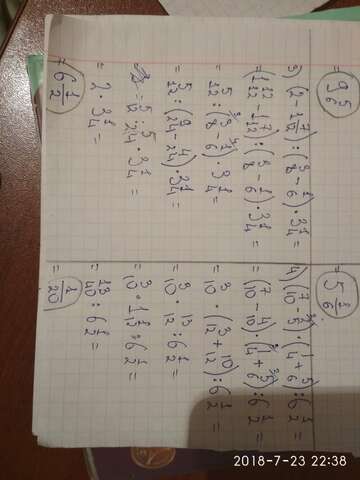 = 9 5/6
3) (2 - 1 7/12) : (3/8 - 1/6) · 3 1/4 =
= (1 12/12 - 1 7/12) : (3/8 - 1/6) · 3 1/4 =
= 5/12 : (3/8 - 1/6) · 3 1/4 =
= 5/12 : (9/24 - 4/24) · 3 1/4 =
= 5/12 : 5/24 · 3 1/4 =
= 2 · 3 1/4 =
= 6 1/2
= 5 1/6
4) (7/10 - 2/5) · (1/4 + 5/6) : 6 1/2 =
= (7/10 - 4/10) · (1/4 + 5/6) : 6 1/2 =
= 3/10 · (3/12 + 10/12) : 6 1/2 =
= 3/10 · 13/12 : 6 1/2 =
= 3/10 · 1 1/12 : 6 1/2 =
= 13/40 : 6 1/2 =
= 1/20
2018-7-23 22:38